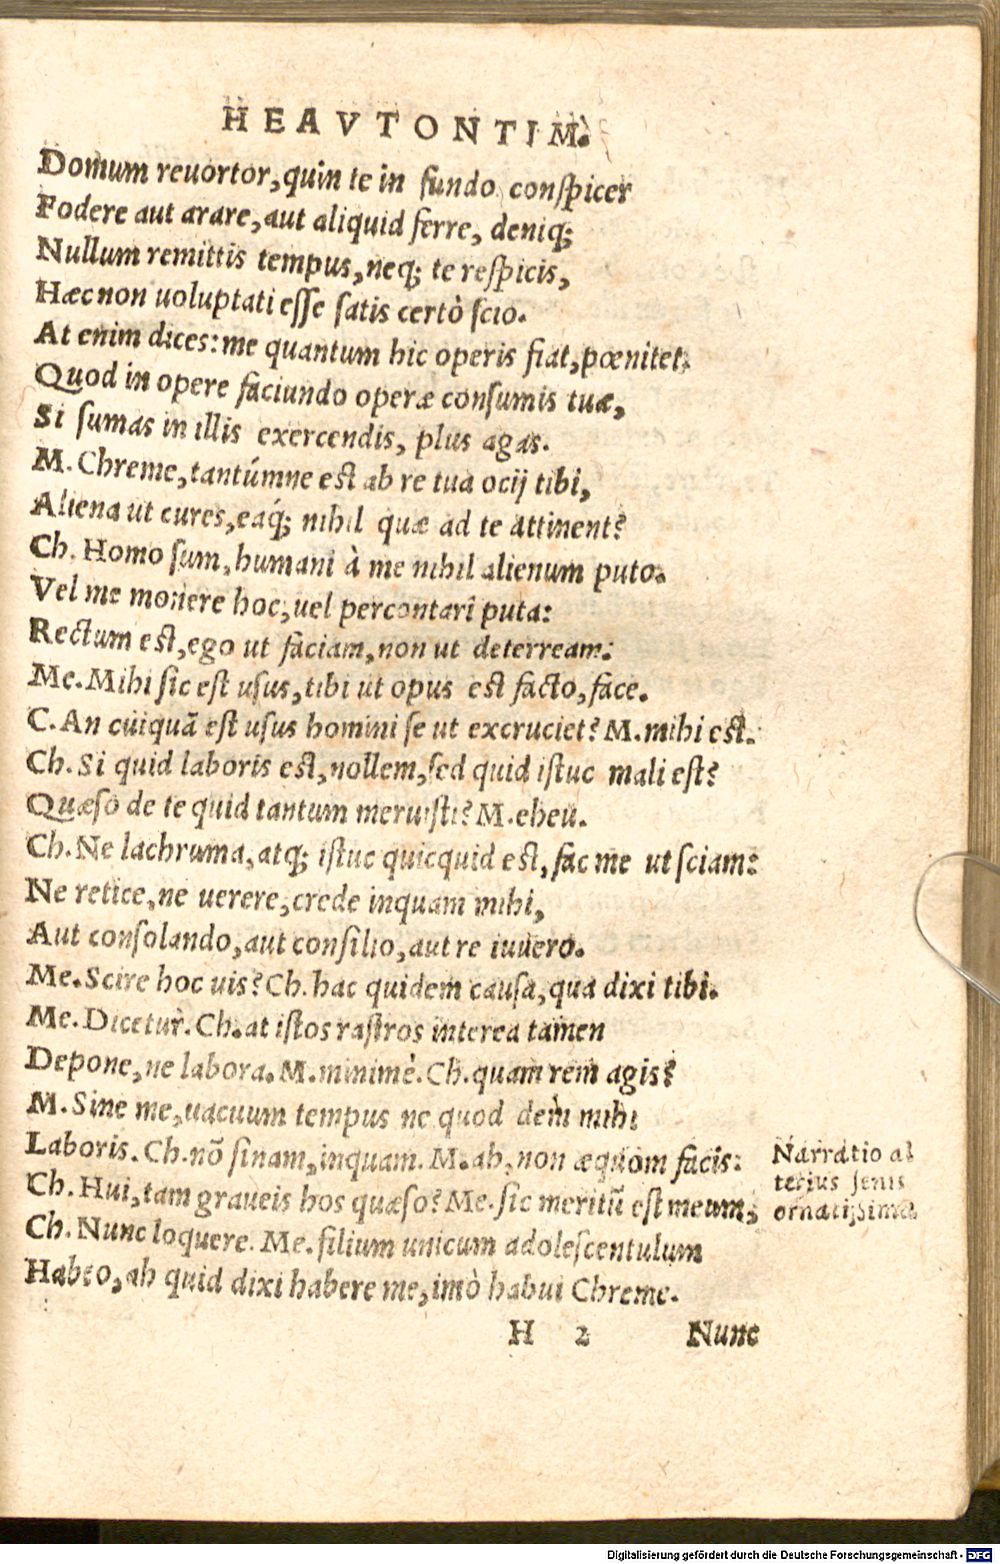 HEAVTONTIM.
Domum reuortor, quin te in fundo conspicer
Fodere aut arare, aut aliquid ferre, deniq;
Nullum remittis tempus, neq; te respicis,
Hæc non uoluptati esse satis certò scio.
At enim dices: me quantum hic operis fiat, pœnitet.
Quod in opere faciundo operæ consumis tuæ,
Si sumas in illis exercendis, plus agas.
M. Chreme, tantúmne est ab re tua ocij tibi,
Aliena ut cures, eaq́; nihil quæ ad te attinent?
Ch. Homo sum, humani à me nihil alienum puto.
Vel me monere hoc, uel percontari puta:
Rectum est, ego ut faciam, non ut deterream:
Me. Mihi sic est usus, tibi ut opus est facto, face.
C. An cuiquã est usus homini se ut excruciet? M. mihi est.
Ch. Si quid laboris est, nollem, sed quid istuc mali est?
Quæso de te quid tantum meruisti? M. eheu.
Ch. Ne lachruma, atq; istuc quicquid est, fac me ut sciam:
Ne retice, ne uerere, crede inquam mihi,
Aut consolando, aut consilio, aut re iuuero.
Me. Scire hoc uis? Ch. hac quidem causa, qua dixi tibi.
Me. Dicetur. Ch. at istos rastros interea tamen
Depone, ne labora. M. minimè. Ch. quam rem agis?
M. Sine me, uacuum tempus ne quod dem mihi
Laboris. Ch. nõ sinam, inquam. M. ah, non æquom facis:
Ch. Hui, tam graueis hos quæso? Me. sic meritũ est meum,
Ch. Nunc loquere. Me. filium unicum adolescentulum
Habeo, ah quid dixi habere me, imò habui Chreme.
Narratio al
terius senis
ornatissima.
H 2 Nunc
Digitalisierung gefördert durch die Deutsche Forschungsgemeinschaft - DFG